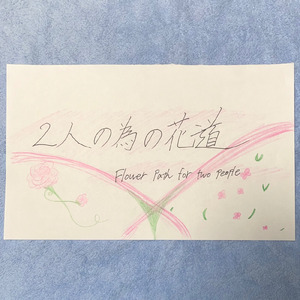 2人の為の花道
Flower Path for two people